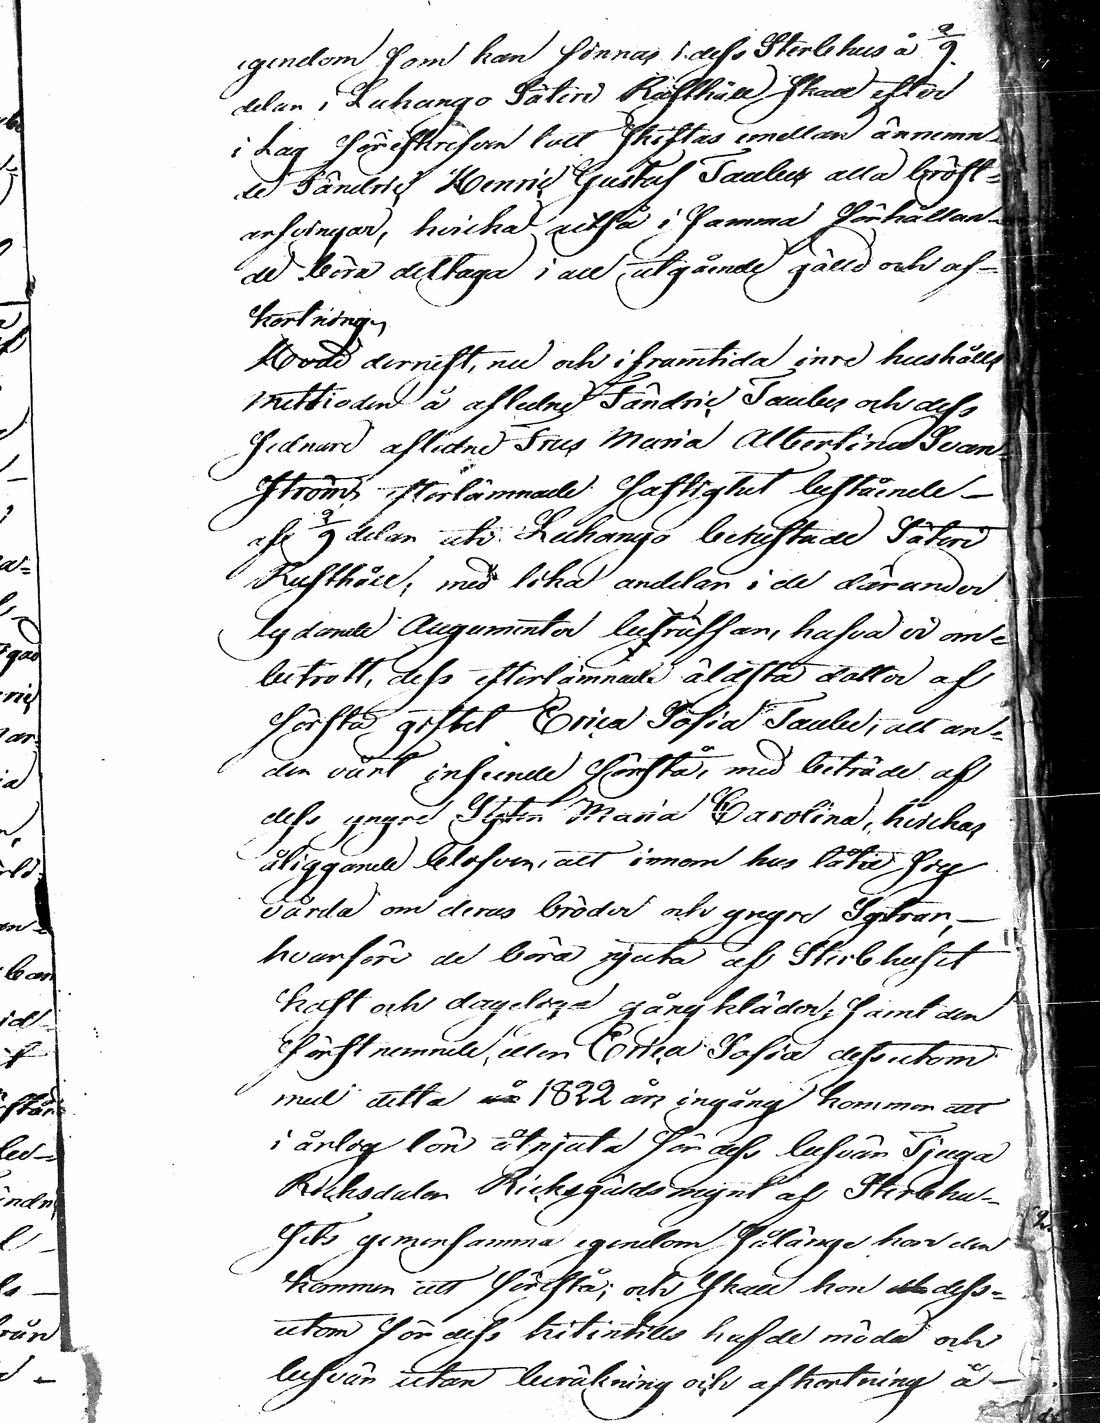 egendom som kan finnas i dess Sterbhus å 2/9
delar i Luhango Säteri Rusthåll skall efter
i Lag föreskrifven rätt skiftas emellan ännemn-
de Fändric Henric Gustaf Taubes alla bröst-
arfvingar, hvicka altså i samma förhållan-
de böra deltaga i all utgående gäld och af-
kortning,
Hvad dernäst, nu och i framtida inre hushålls
mettioden å afledne Fändric Taubes och dess
sednare afledne Frus Maria Albertina Svan-
ströms efterlämnade fastighet bestående
af 2/9 delar uti Luhango bebustade Säteri
Rusthåll, med lika andelar i de därunder
lydande Augumenter beträffar, hafva vi om-
betrott, dess efterlämnade äldsta dotter af
första giftet Erica Sofia Taube, att un-
der vårt inseende förestå, med biträde af
dess yngre Syster Maria Carolina, hvickas
åliggande blifver, att innom hus låta sig
vårda om deras bröder och yngre Systrar,
hvarföre de böra njuta af Sterbhuset
kost och dageliga gångkläder, samt den
förstnemnde, eller Erica Sofia dessutom
med detta 1822 års ingång kommer att
i årlig lön åtnjuta för dess besvär Tjuga
Ricksdaler Ricksgälds mynt af Sterbhu-
sets gemensamma egendom sålänge hon den
kommer att förestå; och skall hon dess-
utom för dess hitintills hafde möda och
besvär utan beräkning och afkortning å